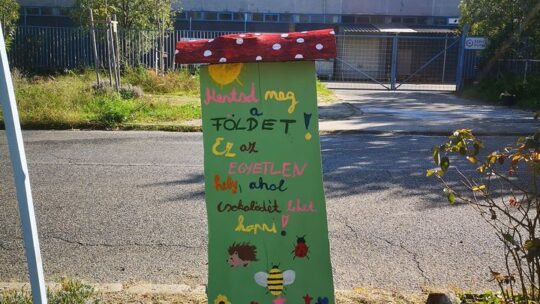 Mentsd meg
a
FÖLDET!
Ez az
EGYETLEN
hely, ahol
csokoládét lehet
kapni!